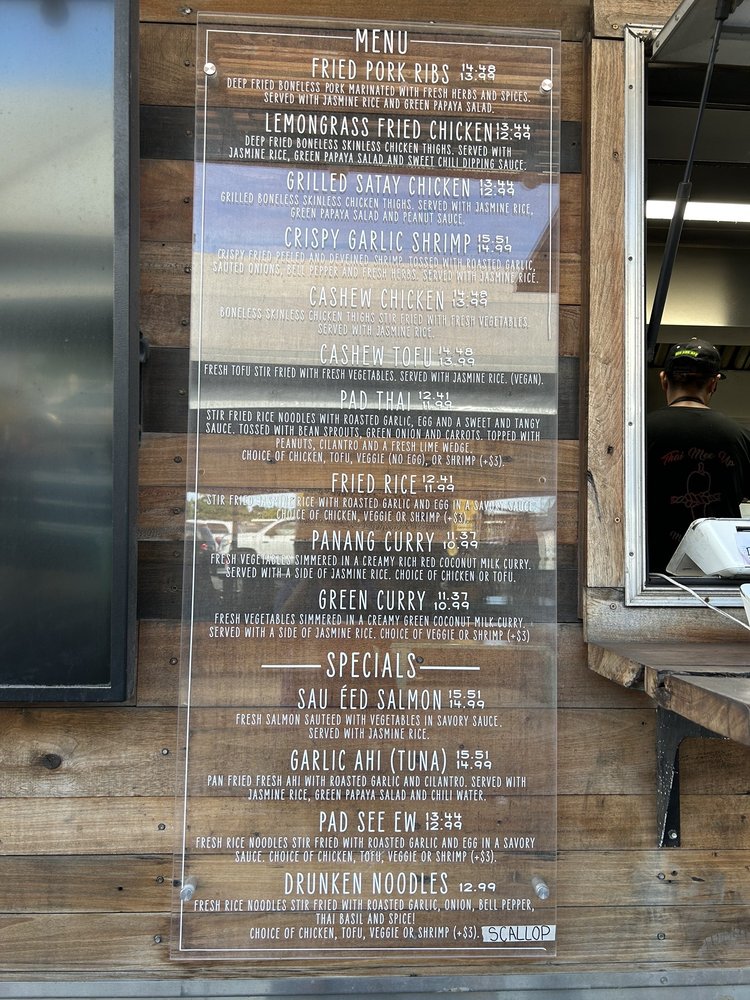 MENU
FRIED PORK RIBS 14.48
13.99
DEEP FRIED BONELESS PORK MARINATED WITH FRESH HERBS AND SPICES.
SERVED WITH JASMINE RICE AND GREEN PAPAYA SALAD.
LEMONGRASS FRIED CHICKEN 13.44
12.99
DEEP FRIED BONELESS SKINLESS CHICKEN THIGHS. SERVED WITH
JASMINE RICE, GREEN PAPAYA SALAD AND SWEET CHILI DIPPING SAUCE.
GRILLED SATAY CHICKEN 13.44
12.99
GRILLED BONELESS SKINLESS CHICKEN THIGHS. SERVED WITH JASMINE RICE,
GREEN PAPAYA SALAD AND PEANUT SAUCE.
CRISPY GARLIC SHRIMP 15.51
14.99
CRISPY FRIED PEELED AND DEVEINED SHRIMP TOSSED WITH ROASTED GARLIC,
SAUTED ONIONS, BELL PEPPER AND FRESH HERBS. SERVED WITH JASMINE RICE.
CASHEW CHICKEN 14.48
13.99
BONELESS SKINLESS CHICKEN THIGHS STIR FRIED WITH FRESH VEGETABLES.
SERVED WITH JASMINE RICE.
CASHEW TOFU 14.48
13.99
FRESH TOFU STIR FRIED WITH FRESH VEGETABLES. SERVED WITH JASMINE RICE. (VEGAN).
PAD THAI 12.41
11.99
STIR FRIED RICE NOODLES WITH ROASTED GARLIC, EGG AND A SWEET AND TANGY
SAUCE. TOSSED WITH BEAN SPROUTS, GREEN ONION AND CARROTS. TOPPED WITH
PEANUTS, CILANTRO AND A FRESH LIME WEDGE.
CHOICE OF CHICKEN, TOFU, VEGGIE (NO EGG), OR SHRIMP (+$3).
FRIED RICE 12.41
11.99
STIR FRIED JASMINE RICE WITH ROASTED GARLIC AND EGG IN A SAVORY SAUCE
CHOICE OF CHICKEN, VEGGIE OR SHRIMP (+$3)
PANANG CURRY 11.37
10.99
FRESH VEGETABLES SIMMERED IN A CREAMY RICH RED COCONUT MILK CURRY.
SERVED WITH A SIDE OF JASMINE RICE. CHOICE OF CHICKEN OR TOFU.
GREEN CURRY 11.37
10.99
FRESH VEGETABLES SIMMERED IN A CREAMY GREEN COCONUT MILK CURRY.
SERVED WITH A SIDE OF JASMINE RICE. CHOICE OF VEGGIE OR SHRIMP (+$3)
SPECIALS
SAU ÉED SALMON 15.51
14.99
FRESH SALMON SAUTEED WITH VEGETABLES IN SAVORY SAUCE,
SERVED WITH JASMINE RICE.
GARLIC AHI (TUNA) 15.51
14.99
PAN FRIED FRESH AHI WITH ROASTED GARLIC AND CILANTRO. SERVED WITH
JASMINE RICE, GREEN PAPAYA SALAD AND CHILI WATER.
PAD SEE EW 13.44
12.99
FRESH RICE NOODLES STIR FRIED WITH ROASTED GARLIC AND EGG IN A SAVORY
SAUCE. CHOICE OF CHICKEN, TOFU, VEGGIE OR SHRIMP (+$3).
DRUNKEN NOODLES 12.99
FRESH RICE NOODLES STIR FRIED WITH ROASTED GARLIC, ONION, BELL PEPPER,
THAI BASIL AND SPICE!
CHOICE OF CHICKEN, TOFU, VEGGIE OR SHRIMP (+$3). SCALLOP
Thai Mee Up